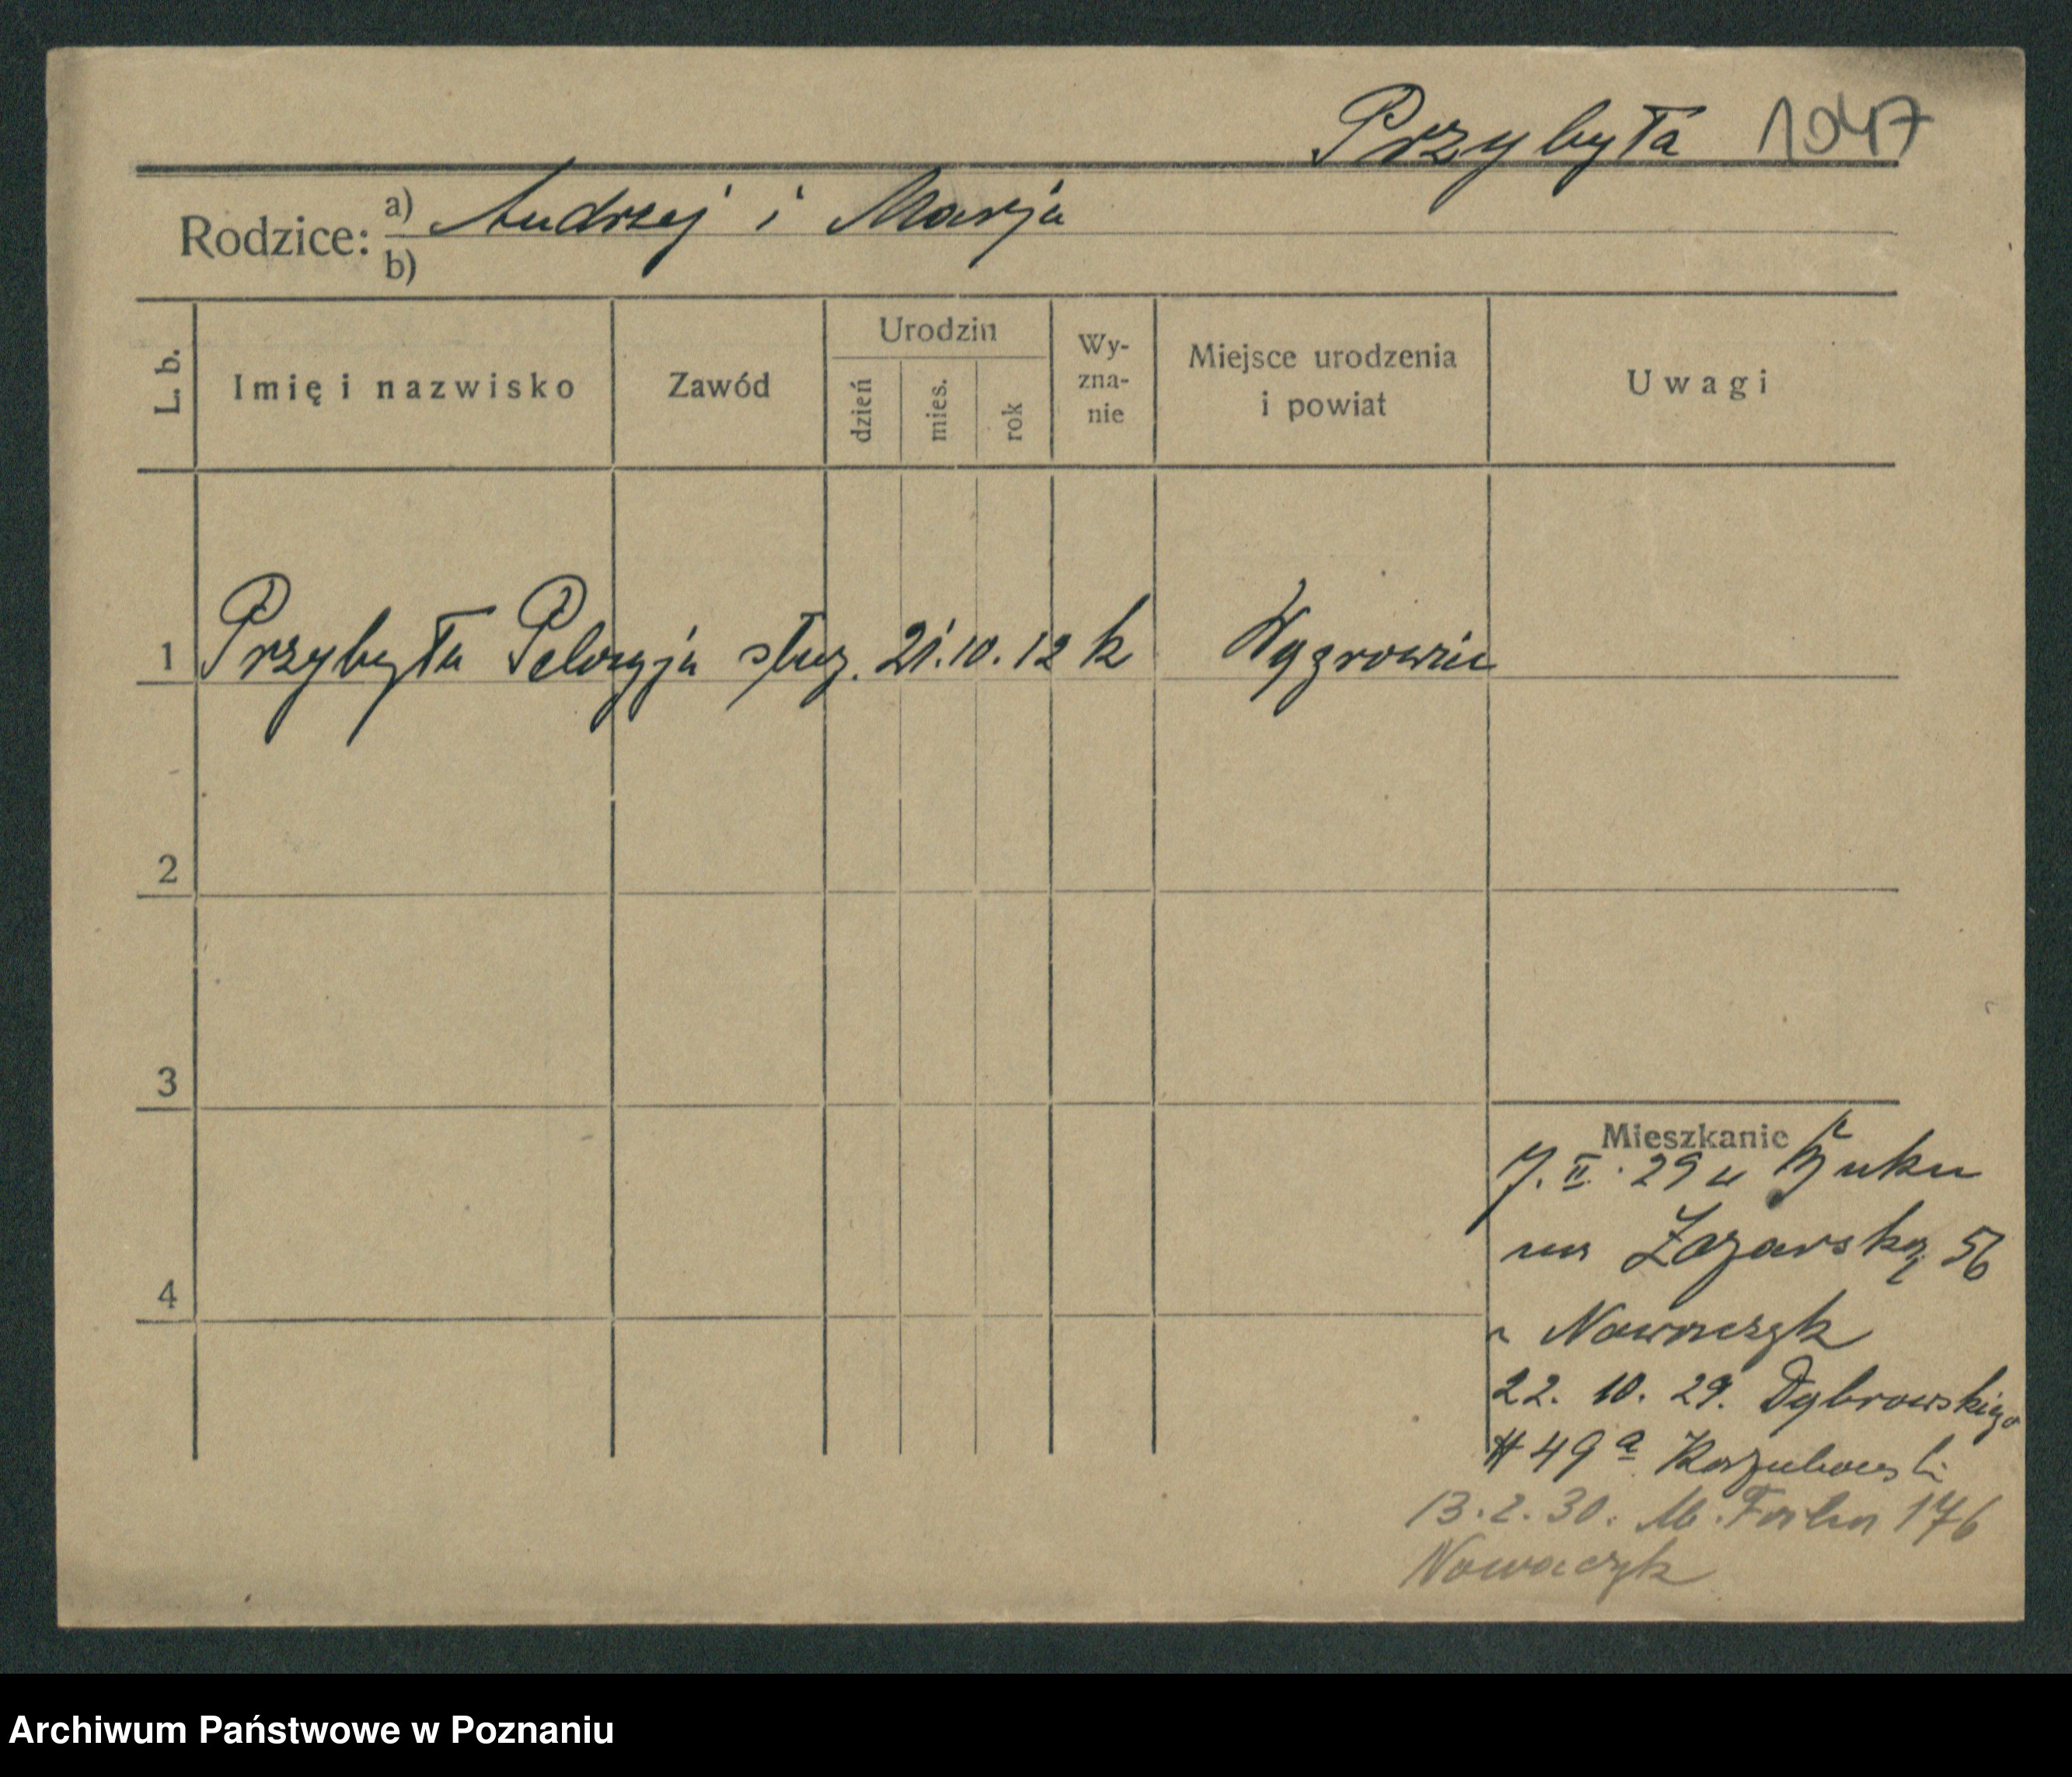 Przybyła 1047
Rodzice: a) Andrzej i Marja
b)
L. b. Imię i nazwisko Zawód Urodzin dzień mies. rok Wy-zna-nie Miejsce urodzenia i powiat Uwagi
1 Przybyła Pelagja służ. 21.10.12 k Wągrowiec
2
3
4
Mieszkanie
7. II. 29 z Buku
na Łazarską 56
Nowaczyk
22. 10. 29. Dąbrowskiego
# 49a
13.2.30. M. Focha 176
Nowaczyk
Archiwum Państwowe w Poznaniu